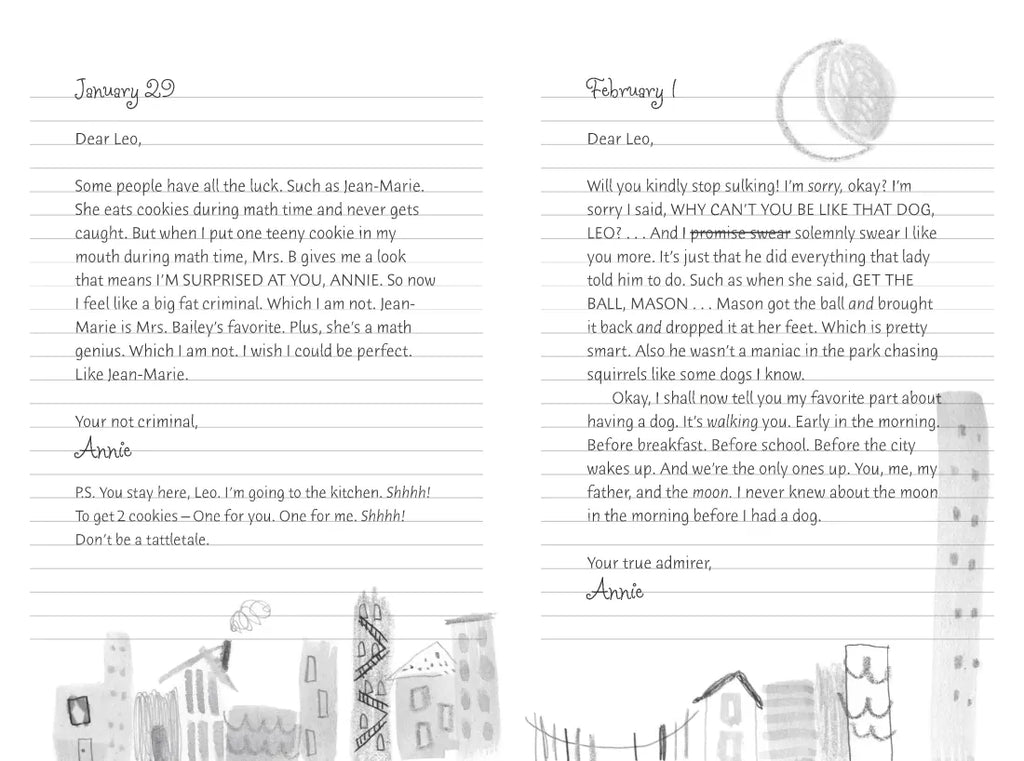 January 29
Dear Leo,
Some people have all the luck. Such as Jean-Marie.
She eats cookies during math time and never gets
caught. But when I put one teeny cookie in my
mouth during math time, Mrs. B gives me a look
that means I'M SURPRISED AT YOU, ANNIE. So now
I feel like a big fat criminal. Which I am not. Jean-
Marie is Mrs. Bailey's favorite. Plus, she's a math
genius. Which I am not. I wish I could be perfect.
Like Jean-Marie.
Your not criminal,
Annie
P.S. You stay here, Leo. I'm going to the kitchen. Shhhh!
To get 2 cookies – One for you. One for me. Shhhh!
Don't be a tattletale.
February 1
Dear Leo,
Will you kindly stop sulking! I'm sorry, okay? I'm
sorry I said, WHY CAN'T YOU BE LIKE THAT DOG,
LEO? . . . And I promise swear solemnly swear I like
you more. It's just that he did everything that lady
told him to do. Such as when she said, GET THE
BALL, MASON . . . Mason got the ball and brought
it back and dropped it at her feet. Which is pretty
smart. Also he wasn't a maniac in the park chasing
squirrels like some dogs I know.
Okay, I shall now tell you my favorite part about
having a dog. It's walking you. Early in the morning.
Before breakfast. Before school. Before the city
wakes up. And we're the only ones up. You, me, my
father, and the moon. I never knew about the moon
in the morning before I had a dog.
Your true admirer,
Annie